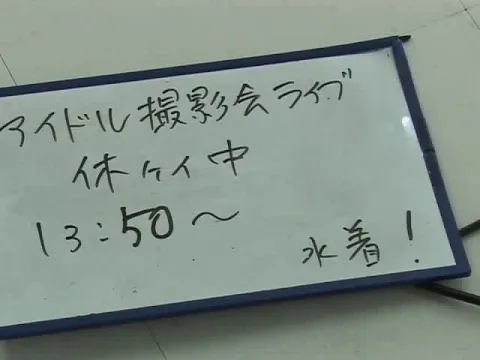 アイドル撮影会ライブ
休ケイ中
13:50～
水着！